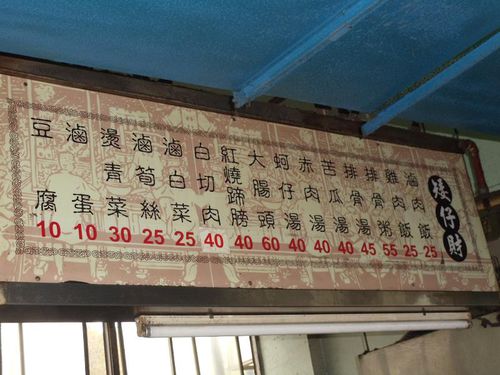 矮仔財
滷肉飯 25
雞肉飯 25
排骨粥 55
排骨湯 45
苦瓜湯 40
赤肉湯 40
蚵仔湯 40
大腸頭 60
紅燒蹄膀 40
白切肉 40
滷白菜 25
滷筍絲 25
燙青菜 30
滷蛋 10
豆腐 10